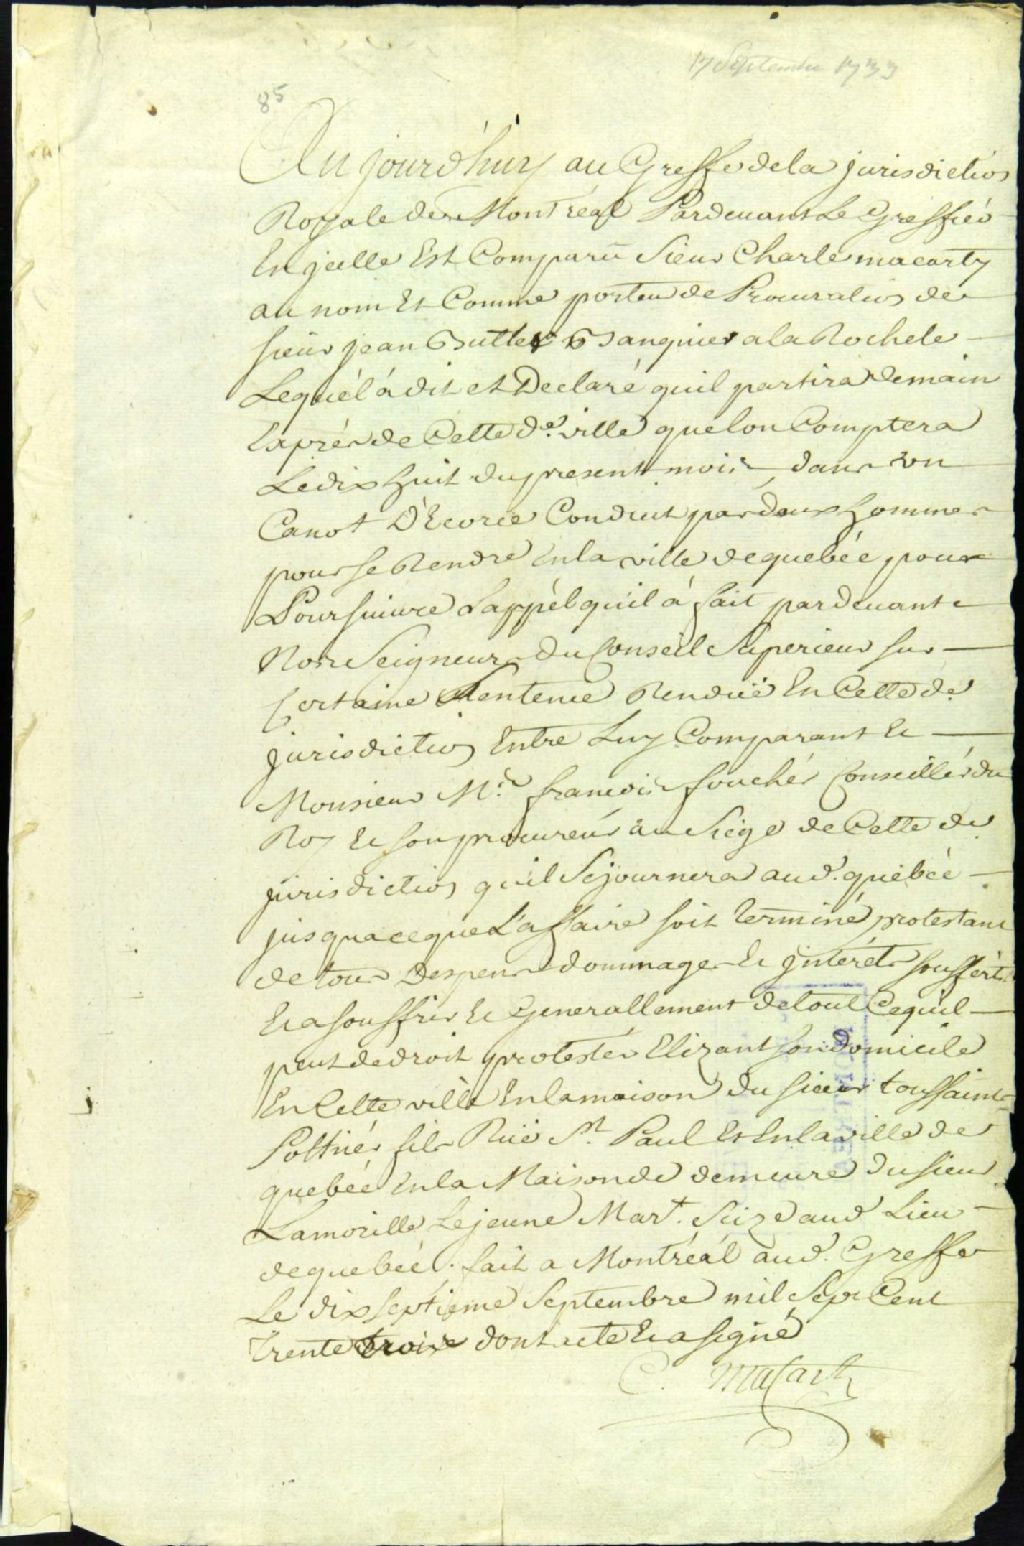 17 Septembre 1733
85
Aujourd'huy au Greffe de la jurisdiction
Royale de Montréal Pardevant Le Greffiér
En jcelle Est Comparü Sieur Charle macarty
au nom Et Comme porteur de Procuration de
sieur jean Butler Banquier a la Rochele
Lequél á dit et Declaré quil partira demain
Exprés de Cette de. ville que lon Comptera
Le dix huit du present mois dans un
Canot D'Ecorce Conduit par deux hommes
pour se Rendre En la ville de quebéc pour
Poursuivre Lappél quil á fait pardevant
Nos Seigneurs du Conseil Superieur sur
Certaine Sentence Renduë En Cette de.
jurisdiction Entre Luy Comparant Et
Monsieur Me. francois fouchér Conseillér du
Roy Et son procureur au Siége de Cette de.
jurisdiction quil Séjournera aud. quebéc
jusqua ce que L'affaire soit Terminé protestant
de tous Depens dommages Et jntérêts soufferts
Et a souffrir Et Generallement de tout Ce quil
peut de droit protester Elizant son Domicile
En Cette ville En la maison du sieur toussaint
Pottiér fils Ruë St. Paul Et En la ville de
quebéc En la Maison de demeure du sieur
Lamorille Le jeune Mart. Seize aud. Lieu
de quebéc. fait a Montréál aud. Greffe
Le dix septieme Septembre mil Sept Cent
Trente trois dont acte Et a signé
C. Macarty